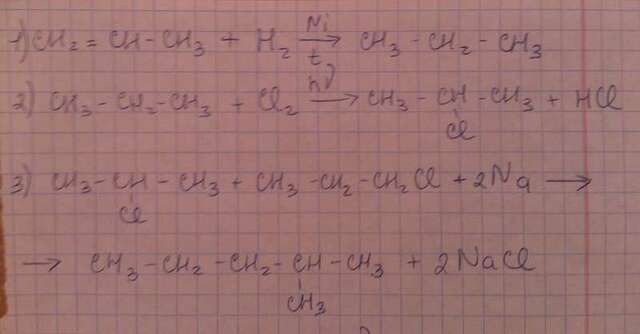 1) CH2 = CH - CH3 + H2 Ni → t CH3 - CH2 - CH3
2) CH3 - CH2 - CH3 + Cl2 hν → CH3 - CH - CH3 + HCl
Cl
3) CH3 - CH - CH3 + CH3 - CH2 - CH2Cl + 2Na →
Cl
→ CH3 - CH2 - CH2 - CH - CH3 + 2NaCl
CH3